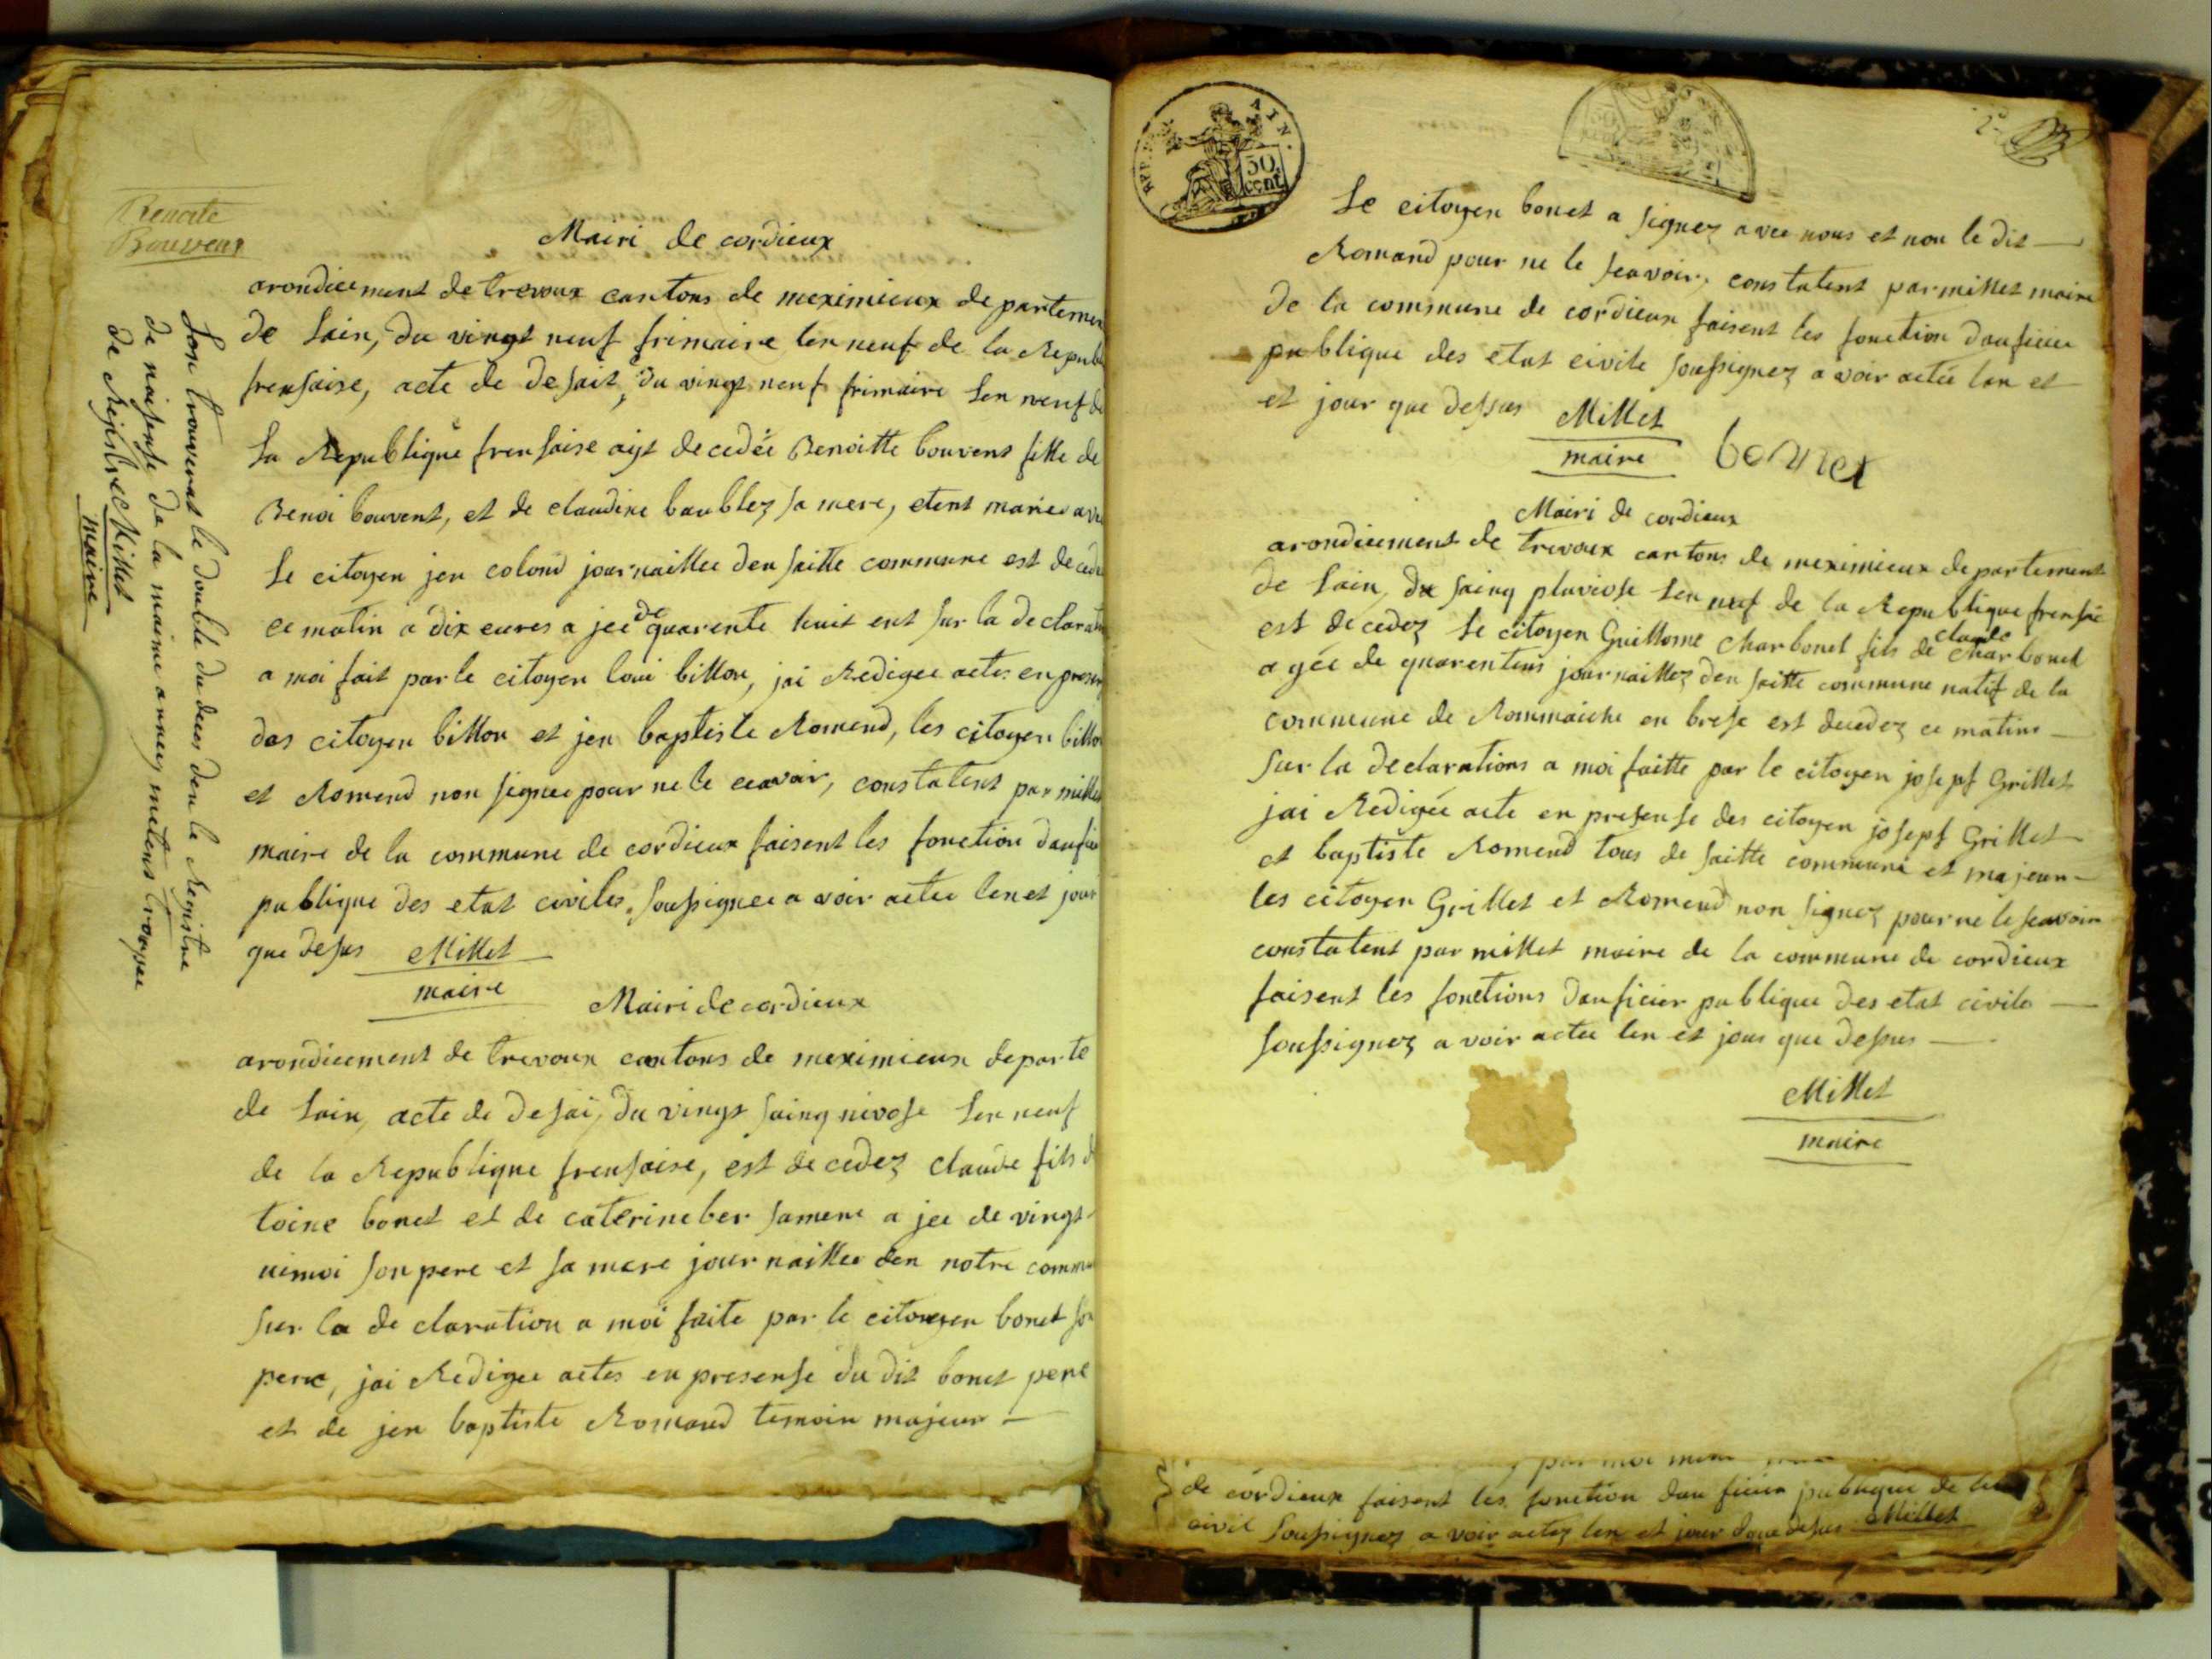 Benoite
Bouvent
Mairi de cordieux
arondicement de trevoux cantons de meximieux departemen
de Lain, du vingt neuf frimaire len neuf de la Republ
frensaise, acte de desait, du vingt neuf frimaire Len neuf de
La Republique frensaise ayt decedée Benoitte bouvent fille de
Benoi bouvent, et de claudine baublez sa mere, etent mariée ave
Le citoyen jen colond journaillee den saitte commune est decede
ce matin a dix eures a jee de quarente huit ent sur la declarat
a moi fait par le citoyen loui billon, jai Redigee actes en presen
das citoyen billon et jen baptiste Romend, les citoyen billon
et Romend non signee pour ne le ceavoir, constatent par millet
maire de la commune de cordieux faisent les fonction daufici
publique des etat civiles, soussignee a voir actee len et jour
que desus Millet
maire
Mairi de cordieux
arondicement de trevoux cantons de meximieux departe
de Lain, acte de desai, du vingt sainq nivose Len neuf
de la Republique frensaise, est decedez claude fils d
toine bonet et de caterine ber sa mere a jee de vingt
uimoi son pere et sa mere journaillee den notre commu
sur la declaration a moi faite par le citoyen bonet so
pere, jai Redigee actes en presense du dit bonet pere
et de jen baptiste Romand temoin majeur —
Lon trouverat le double du deces den le Registre
de naisense de la maime anney metens trompee
de Registre Millet
maire
AIN.
REP. FRA.
50
cent
2e
Le citoyen bonet a signez avec nous et non le dit —
Romand pour ne le seavoir, constatent par millet maire
de la commune de cordieux faisent les fonction dauficier
publique des etat civile soussignez a voir actée lan et
et jour que dessus Millet
maire
bonet
Mairi de cordieux
arondicement de trevoux cantons de meximieux departement
de Lain, du sainq pluviose Len neuf de la Republique frensai
est decedez Le citoyen Guillome Charbonet fils de claude Charbonet
a gée de quarentens journaillez den saitte commune natif de la
commune de Rommaiche en brese est decedez ce matins —
sur la declarations a moi faitte par le citoyen josepf Grillet
jai Redigée acte en presense des citoyen josepf Grillet
et baptiste Romend tous de saitte commune et majeur —
les citoyen Grillet et Romend non signez pour ne le seavoir
constatent par millet maire de la commune de cordieux
faisent les fonctions dauficier publique des etat civile —
soussignez a voir actee len et jour que dessus —
Millet
maire
par moi
de cordieux faisent les fonction dau ficier publique de
civil soussignez a voir actez len et jour que desus Millet